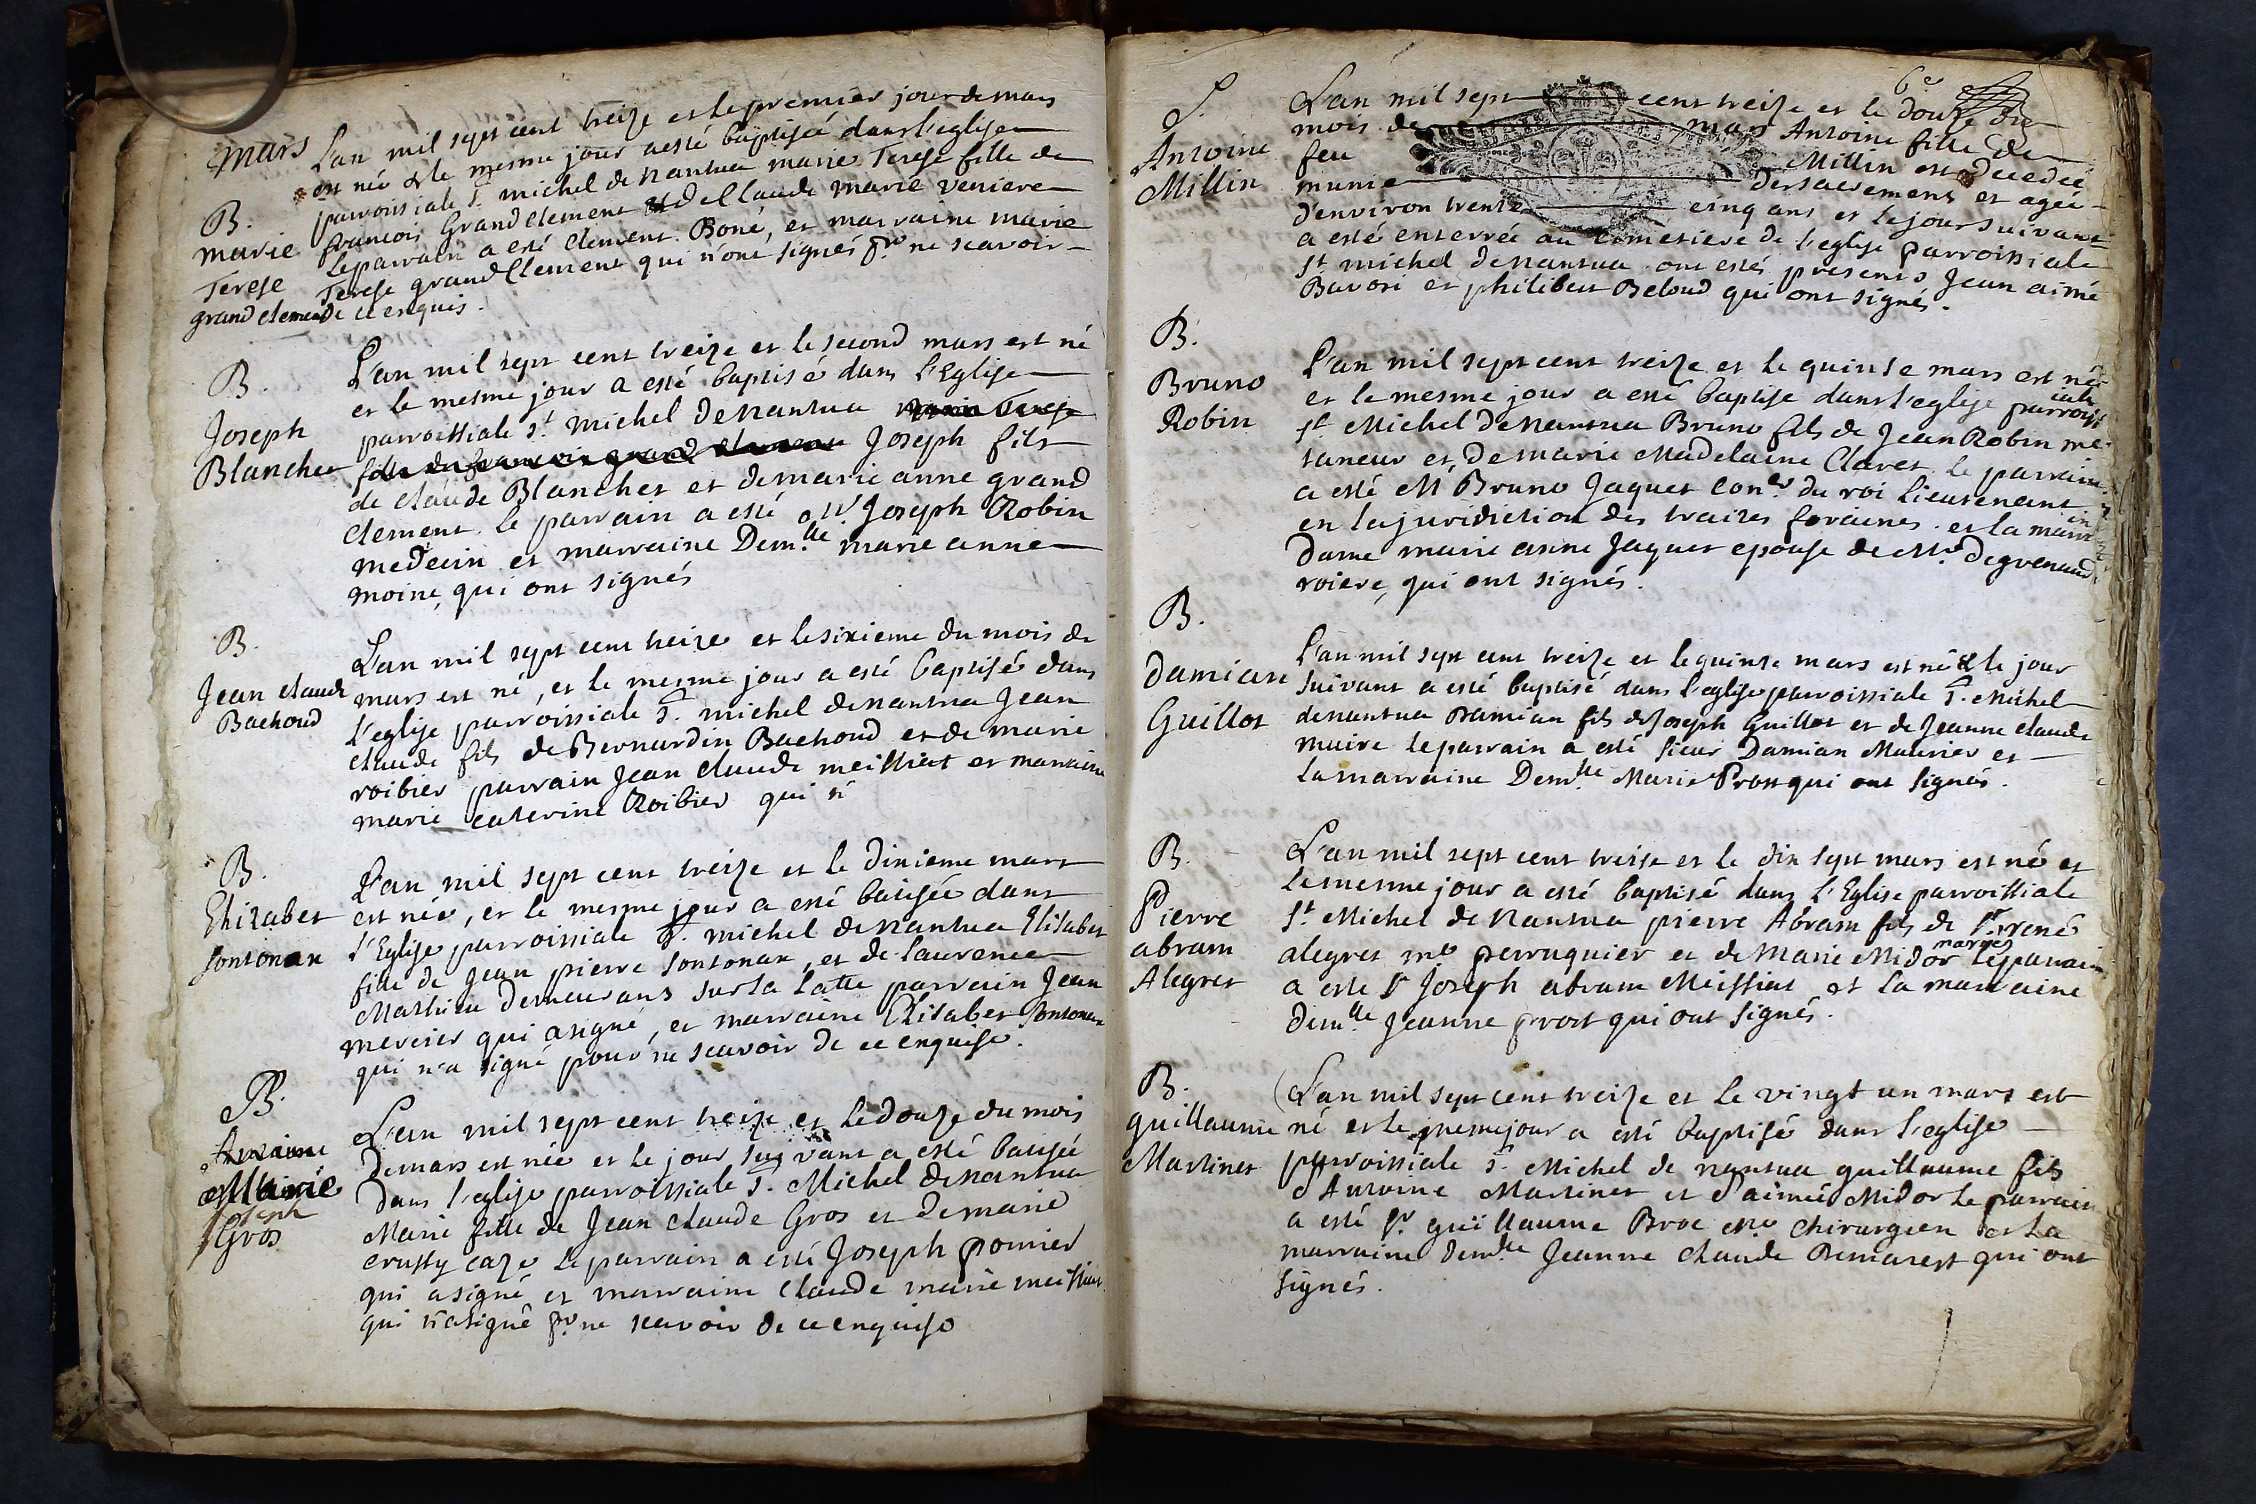 mars
L'an mil sept cent treize et le premier jour de mars
est née & le mesme jour a esté baptisée dans l'eglise
parroissiale St. michel de nantua marie Terese fille de
B.
marie
Terese
grand clement
francois Grand clement & de Claude marie veniere
le parrain a esté clement Boné, et marraine marie
Terese grand Clement qui n'ont signés pr. ne scavoir
de ce enquis.
B.
Joseph
Blanchet
L'an mil sept cent treize et le second mars est né
et le mesme jour a esté baptisé dans l'Eglise
parroissiale St. michel de nantua marie Terese
fille de francois grand clement Joseph fils
de claude Blanchet et de marie anne grand
clement. le parrain a esté Joseph Robin
medecin et marraine Dem.lle marie anne
moine, qui ont signés
B.
Jean claude
Bachoud
L'an mil sept cent treize et le sixieme du mois de
mars est né, et le mesme jour a esté baptisé dans
l'eglise parroissiale St. michel de nantua Jean
claude fils de Bernardin Bachoud et de marie
roibier parrain Jean claude meissiat et marraine
marie caterine Roibier qui n'
B.
Elizabet
Sontonax
L'an mil sept cent treize et le dixieme mars
est née, et le mesme jour a esté batisée dans
l'Eglise parroissiale St. michel de nantua Elisabet
fille de Jean pierre Sontonax, et de laurence
Mathieu demeurans sur la latte parrain Jean
mercier qui a signé, et marraine Elisabet Sontonax
qui n'a signé pour ne scavoir de ce enquise.
B.
Marie
Joseph
Gros
L'an mil sept cent treize et le douze du mois
de mars est née et le jour suivant a esté batisée
dans l'eglise parroissiale St. Michel de nantua
Marie fille de Jean claude Gros et de marie
crussy caze le parrain a esté Joseph pomier
qui a signé et marraine claude marie meissiat
qui n'a signé pr. ne scavoir de ce enquise
6e
S.
Antoine
Millin
L'an mil sept cent treize et le douze du
mois de mars Antoine fille de
feu Millin est decedée
munie des sacremens et agée
d'environ trente cinq ans et le jour suivant
a esté enterrée au cimetiere de l'eglise parroissiale
St. michel de nantua. ont estés presents Jean aimé
Bavori et philibert Beloud qui ont signés.
B.
Bruno
Robin
L'an mil sept cent treize et le quinse mars est né
et le mesme jour a esté baptisé dans l'eglise parroissiale
St. Michel de nantua Bruno fils de Jean Robin me.
taneur et de marie Madelaine Claret. le parrain
a esté Mr Bruno Jaquet con.er du roi lieutenant
en la juridiction des traites foraines. et la marraine
Dame marie anne Jaquet epouse de Mr. degrenaud
roiere, qui ont signés.
B.
Damian
Guillot
L'an mil sept cent treize et le quinze mars est né & le jour
suivant a esté baptisé dans l'eglise parroissiale St. Michel
de nantua Damian fils de Joseph Guillot et de Jeanne claude
maire le parrain a esté sieur Damian Maurier et
la marraine Dem.lle Marie Prost qui ont signés.
B.
Pierre
abram
Alegret
L'an mil sept cent treise et le dix sept mars est né et
le mesme jour a esté baptisé dans l'Eglise parroissiale
St. Michel de Nantua pierre Abram fils de Sr. rené
alegret me perruquier et de Marie Midor mariés le parrain
a esté Sr Joseph abram Meissiat et la marraine
dem.lle Jeanne prost qui ont signés.
B.
guillaume
Martinet
L'an mil sept cent treize et le vingt un mars est
né et le mesme jour a esté baptisé dans l'eglise
parroissiale St. Michel de nantua guillaume fils
d'Antoine Martinet et d'aimée Midor le parrain
a esté Sr guillaume Broc me. chirurgien et la
marraine dem.lle Jeanne claude Demarest qui ont
signés.